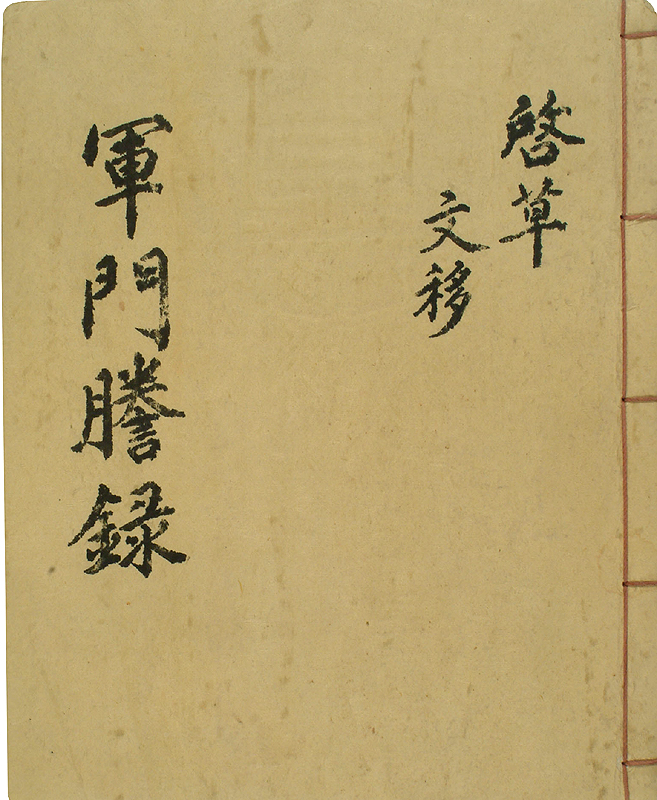 啓草
文移
軍門謄録